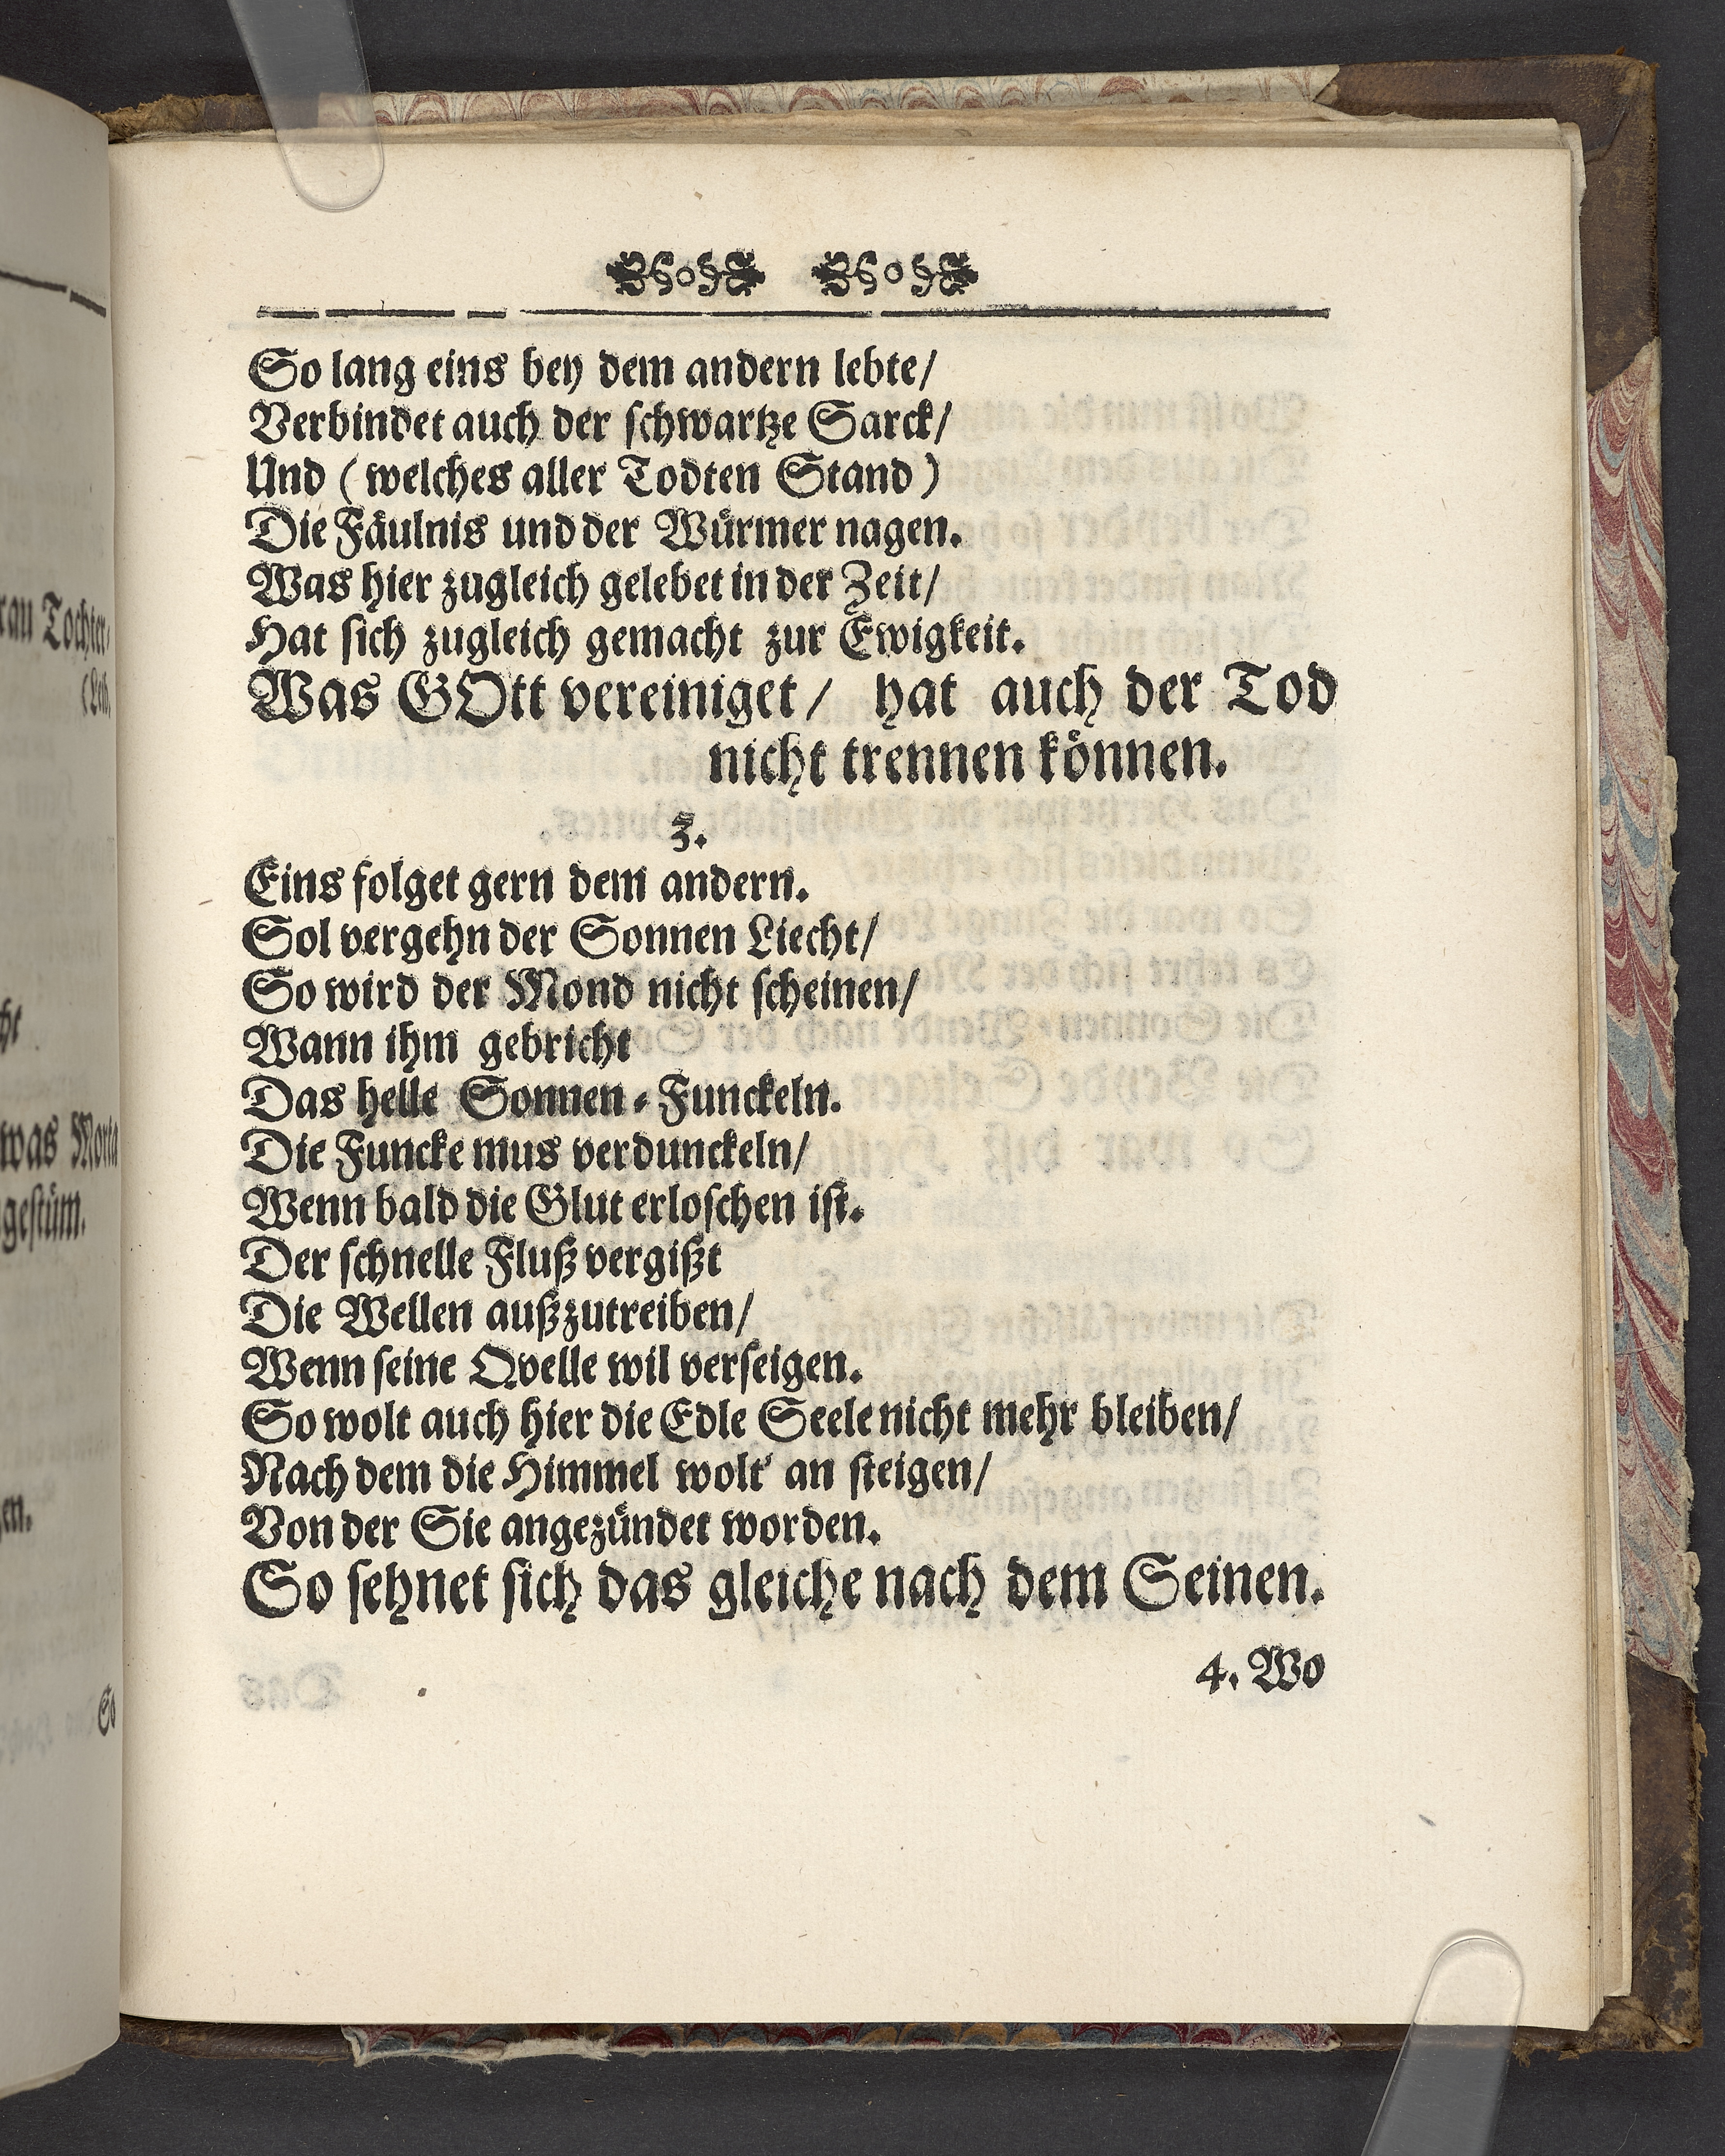 rau Tochter/
ht
was Moria
gestüm.
en.
So
So lang eins bey dem andern lebte/
Verbindet auch der schwartze Sarck/
Und (welches aller Todten Stand)
Die Fäulnis und der Würmer nagen.
Was hier zugleich gelebet in der Zeit/
Hat sich zugleich gemacht zur Ewigkeit.
Was GOtt vereiniget/ hat auch der Tod
nicht trennen können.
3.
Eins folget gern dem andern.
Sol vergehn der Sonnen Liecht/
So wird der Mond nicht scheinen/
Wann ihm gebricht
Das helle Sonnen-Funckeln.
Die Funcke mus verdunckeln/
Wenn bald die Glut erloschen ist.
Der schnelle Fluß vergißt
Die Wellen außzutreiben/
Wenn seine Qvelle wil verseigen.
So wolt auch hier die Edle Seele nicht mehr bleiben/
Nach dem die Himmel wolt' an steigen/
Von der Sie angezündet worden.
So sehnet sich das gleiche nach dem Seinen.
4. Wo